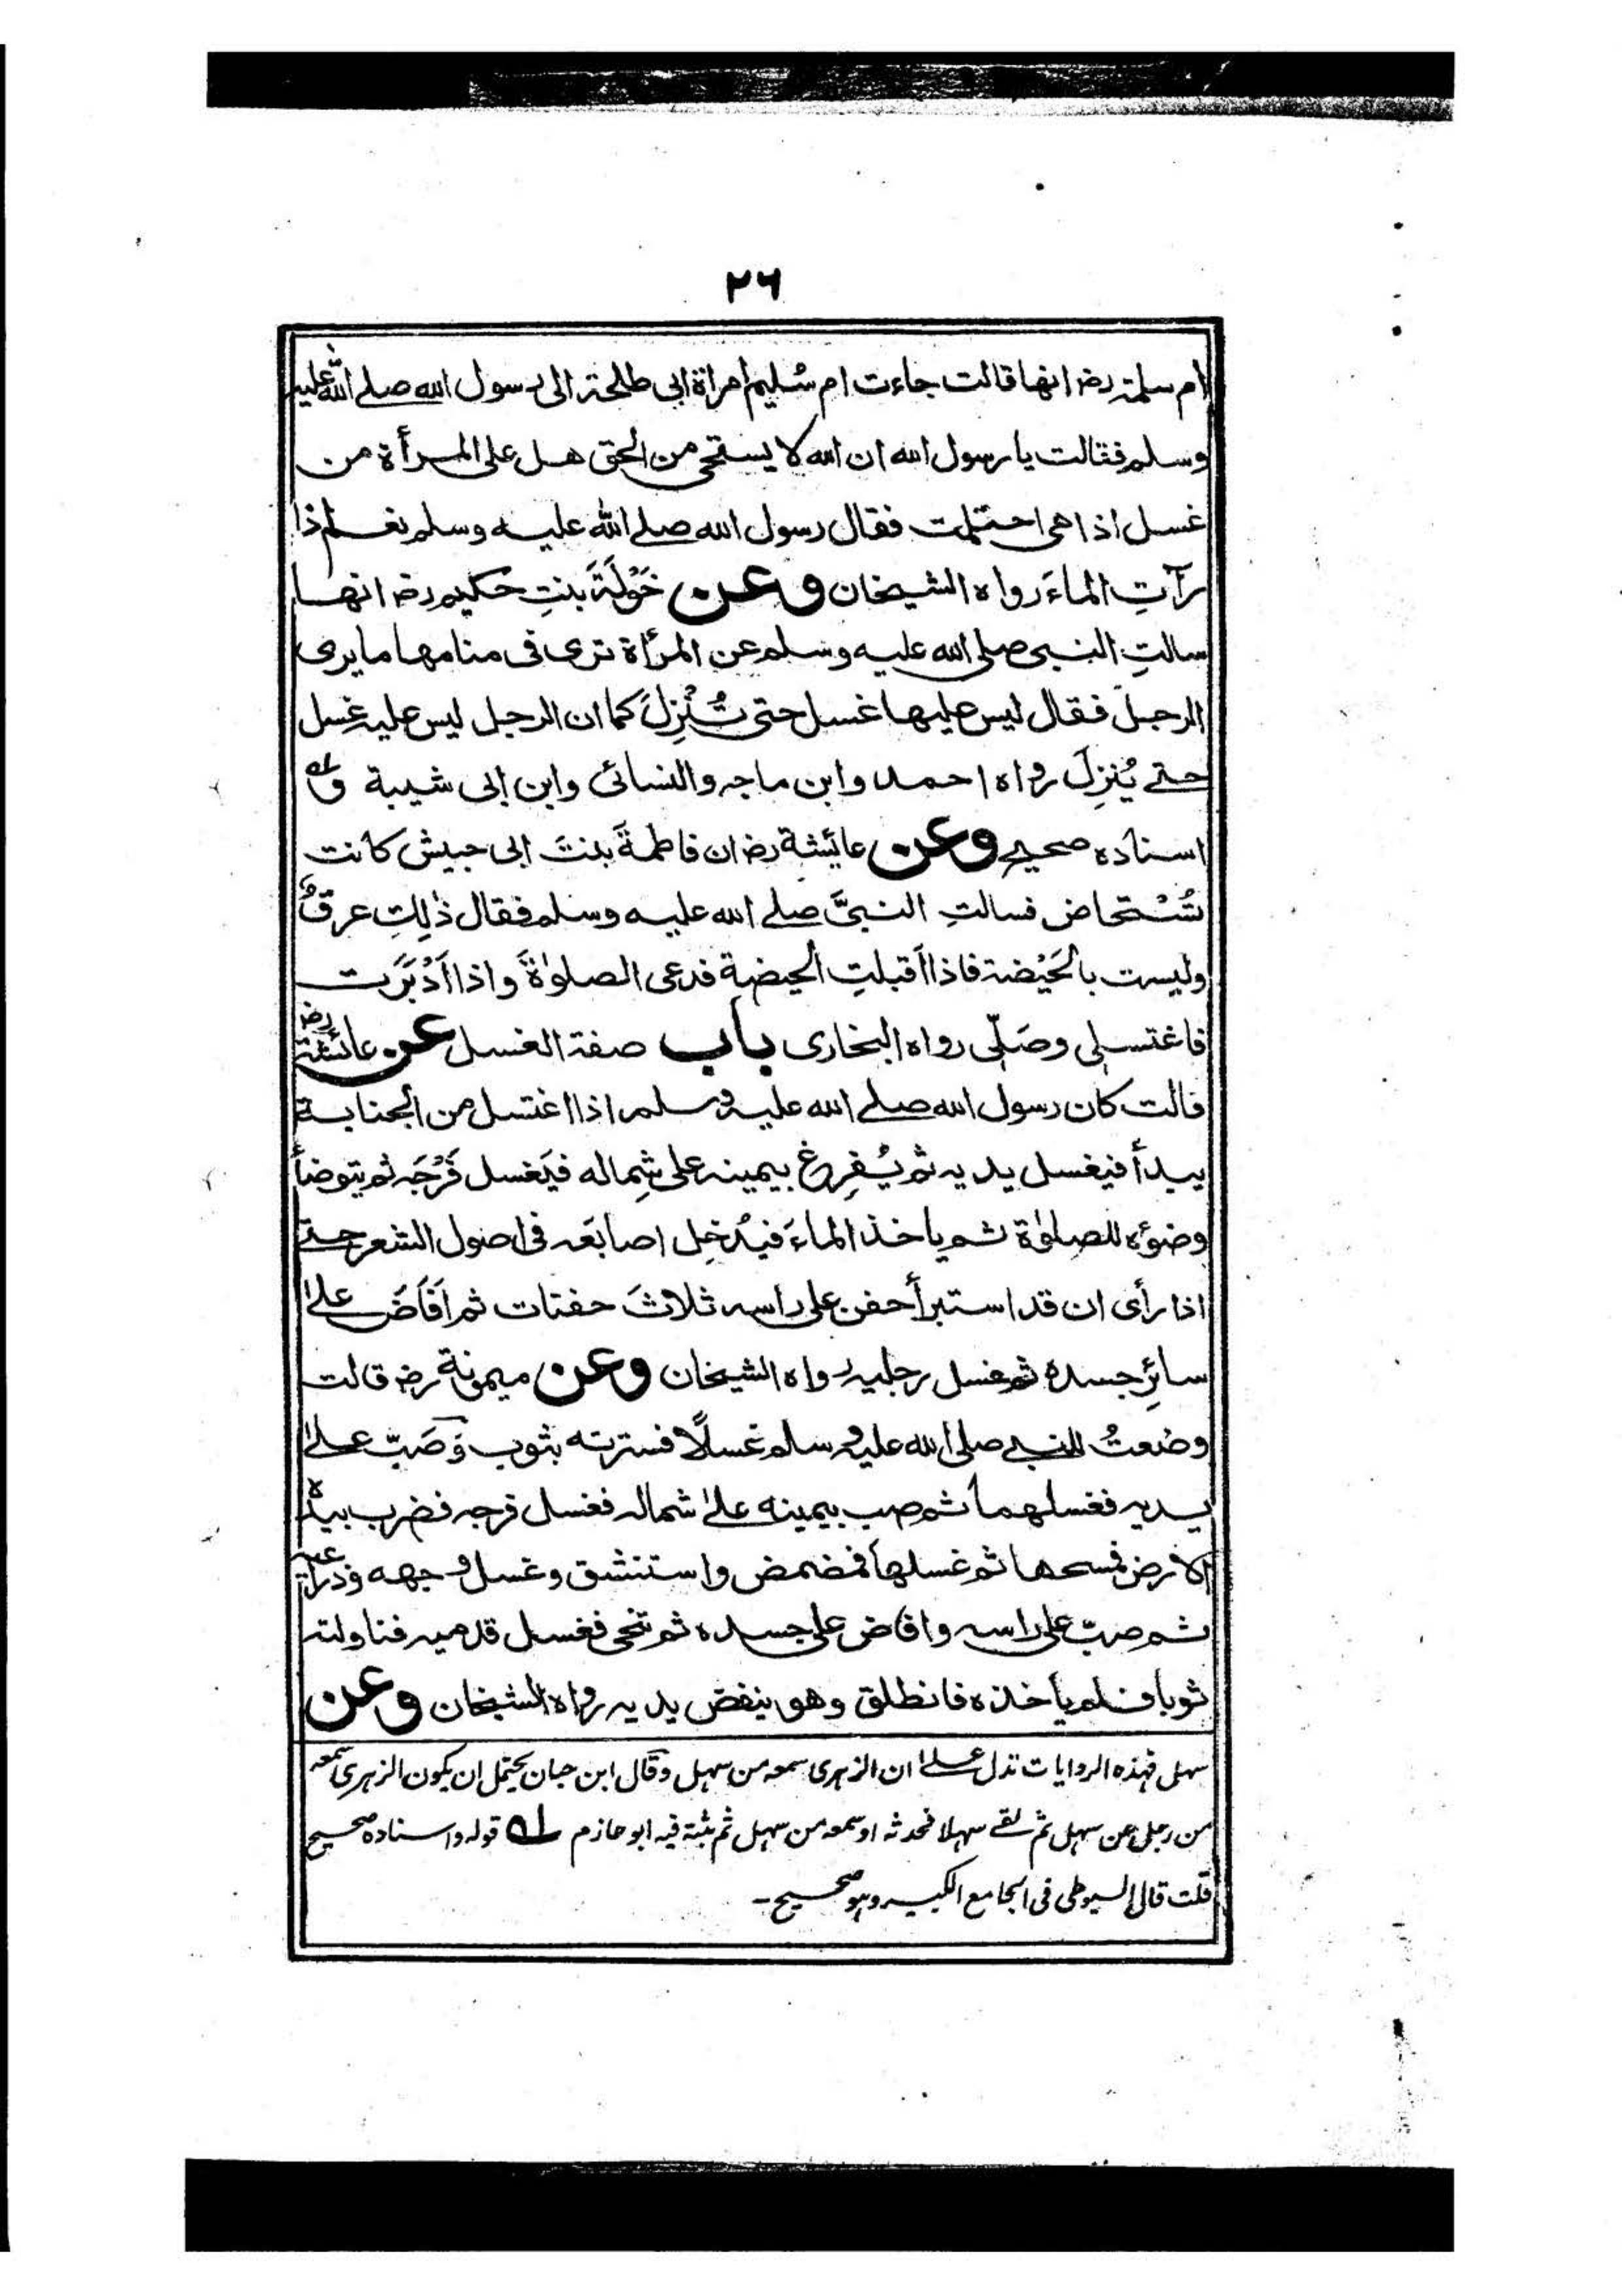 ٢٦
ام سلمة رضـ انها قالت جاءت ام سُليم امراة ابى طلحة الى رسول الله صلے اللّٰه عليه
وسلم فقالت يا رسول الله ان الله لا يستحى من الحق هل على المرأة من
غسل اذا هى احتلمت فقال رسول الله صلے اللّٰه عليه وسلم نعم اذا
رآتِ الماءَ رواه الشيخان وعن خَوْلَةَ بنتِ حكيم رضـ انها
سالتِ النبى صلى الله عليه وسلم عن المرأة ترى فى منامها ما يرى
الرجل فقال ليس عليها غسل حتى تُنْزِلَ كما ان الرجل ليس عليه غسل
حتے يُنزِلَ رواه احمد وابن ماجه والنسائى وابن ابى شيبة و
اسناده صحيح وعن عائشة رضـ ان فاطمةَ بنتَ ابى حبيش كانت
تُسْتحاض فسالتِ النبىَّ صلے الله عليه وسلم فقال ذٰلِكِ عرقٌ
وليست بالحَيْضة فاذا اَقبلتِ الحيضة فدعى الصلوٰةَ واذا اَدْبَرَت
فاغتسلى وصَلّى رواه البخارى باب صفة الغسل عن عائشة رضـ
قالت كان رسول الله صلے الله عليه وسلم اذا اغتسل من الجنابة
يبدأ فيغسل يديه ثم يُفرِغ بيمينه على شِماله فيَغسل فَرْجَه ثم يتوضأ
وضوٗه للصلوٰة ثم ياخذ الماءَ فيُدخِل اصابعَه فى اصول الشعر حتے
اذا رأى ان قد استبرأ حفن على راسه ثلاثَ حفنات ثم اَفَاضَ علےٰ
سائرِ جسده ثم غسل رجليه رواه الشيخان وعن ميمونة رضـ قالت
وضعتُ للنبے صلى الله عليه وسلم غسلًا فسترته بثوب وَصَبّ علےٰ
يديه فغسلهما ثم صب بيمينه علےٰ شماله فغسل فرجه فضرب بيده
الارض فمسحها ثم غسلها فمضمض واستنشق وغسل وجهه وذراعيه
ثم صبّ على راسه وافاض على جسده ثم تنحى فغسل قدميه فناولته
ثوبا فلم يأخذه فانطلق وهو ينفض يديه رواه الشيخان وعن
سهل فهذه الروايات تدل علےٰ ان الزهرى سمعه من سهل وقال ابن حبان يحتمل ان يكون الزهرى سمعه
من رجل عن سهل ثم لقے سهلا فحدثه او سمعه من سهل ثم ثبته فيه ابو حازم له قوله واسناده صحيح
قلت قال السيوطى فى الجامع الكبير وهو صحيح۔